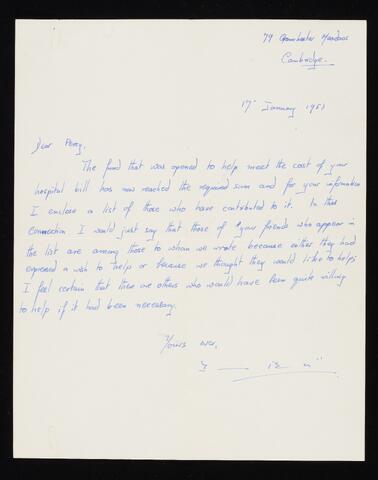 79 Grantchester Meadows
Cambridge.
17 January 1953
Dear Percy,
The fund that was opened to help meet the cost of your
hospital bill has now reached the required sum and for your information
I enclose a list of those who have contributed to it. In this
connection I would just say that those of your friends who appear in
the list are among those to whom we wrote because either they had
expressed a wish to help or because we thought they would like to help;
I feel certain that there are others who would have been quite willing
to help if it had been necessary.
Yours ever,